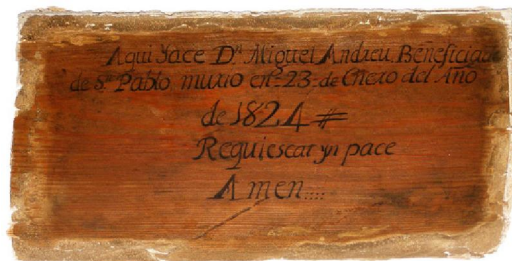 Aqui Yace Dn Miguel Andreu Beneficiado
de Sn Pablo muxio en 23 de Enexo del Año
de 1824 #
Requiescat yn pace
Amen....